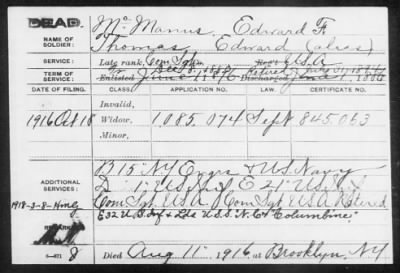 DEAD.
Mc Manus, Edward F.
NAME OF SOLDIER:
Thomas, Edward (alias)
SERVICE:
Late rank, Com Sgt U.S.A
TERM OF SERVICE:
Enlisted Discharged
DATE OF FILING. CLASS. APPLICATION NO. LAW. CERTIFICATE NO.
Invalid,
1916 Oct 18 Widow, 1.085.074 Sept 845.063
Minor,
ADDITIONAL SERVICES:
B 15" N.Y. Engrs & U.S. Navy
D 1" U.S. Inf E 21" U.S. Inf
1918-3-8- Com Sgt U.S.A. Com Sgt U.S.A Retired
E 32 U.S. Inf & Lds U.S.S. "N.C." & "Columbine"
REMARKS:
Died Aug 11", 1916, at Brooklyn, N.Y.